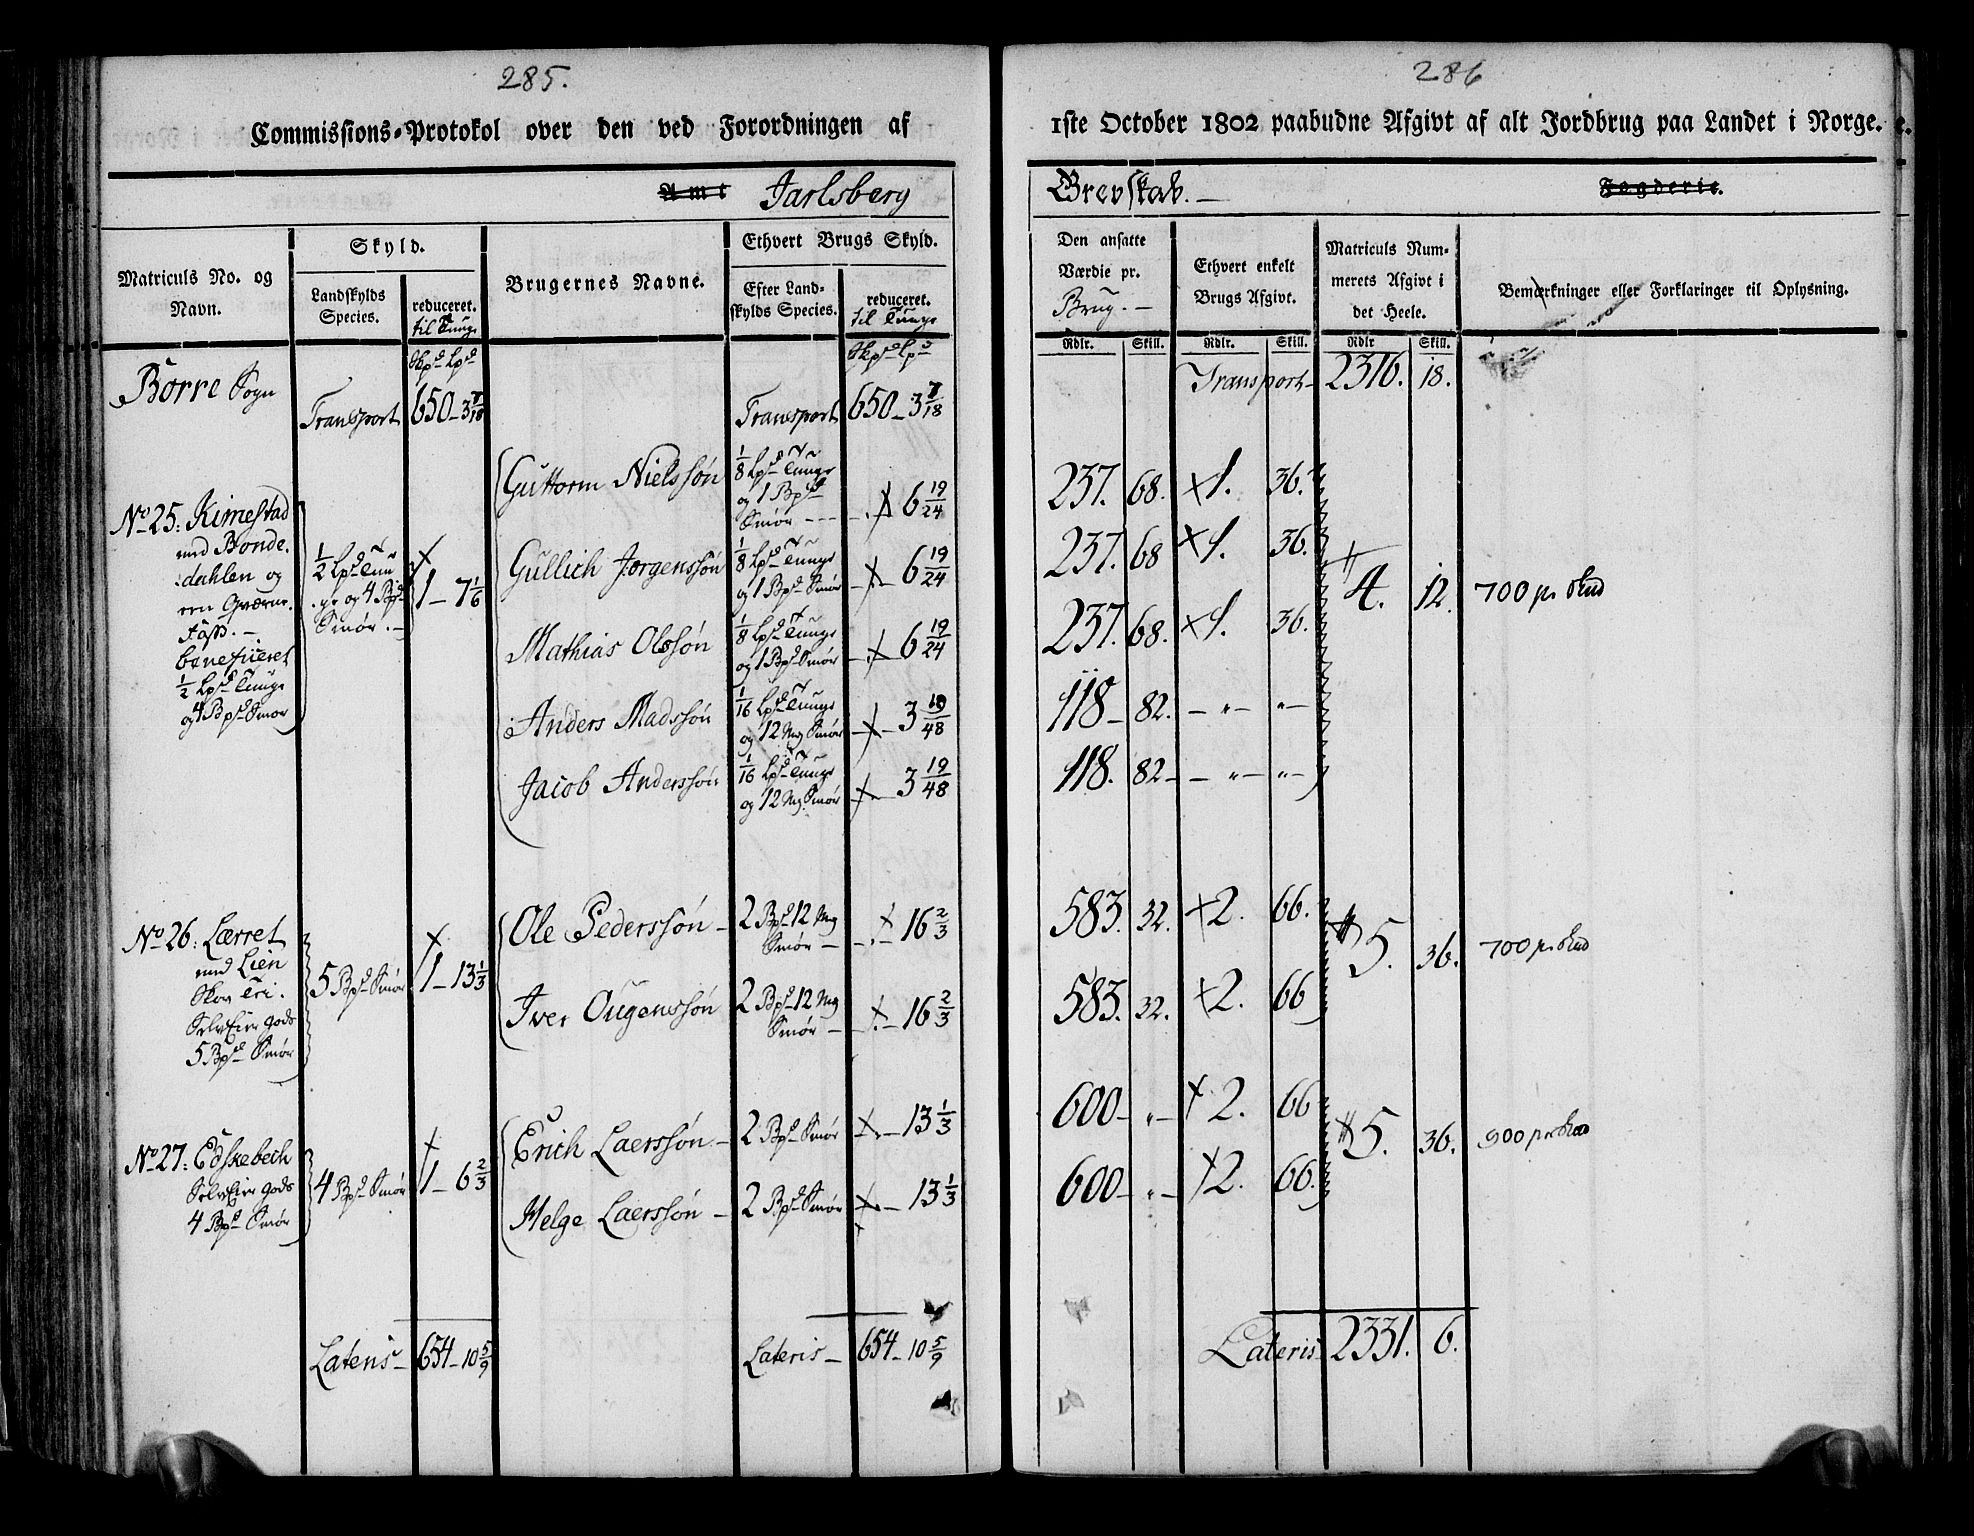 285.
Commissions-Protokol over den ved Forordningen af
Amt Jarlsberg
Matriculs No. og Navn.
Skyld.
Landskylds Species.
reduceret.
til Tunge
Brugernes Navne.
Ethvert Brugs Skyld.
Efter Land-
skylds Species.
reduceret.
til Tunge
Skpd Lpd
Skpd Lpd
Borre Sogn
Transport 650 - 3 7/18
Transport 650 - 3 7/18
No 25: Kimestad
med Bonde.
dahlen og
een Qværne.
Foss. -
beneficeret
1/2 Lpd Tunge
og 4 Bpd Smør
1/2 Lpd Tun
ge og 4 Bpd
Smør. -
1 - 7 1/6
Guttorm Nielssøn
1/8 Lpd Tunge
og 1 Bpd
Smør - - -
6 19/24
Gullich Jørgenssøn
1/8 Lpd Tunge
og 1 Bpd Smør
6 19/24
Mathias Olssøn
1/8 Lpd Tunge
og 1 Bpd Smør
6 19/24
Anders Madssøn
1/16 Lpd Tunge
og 12 Mg Smør
3 19/48
Jacob Anderssøn
1/16 Lpd Tunge
og 12 Mg Smør
3 19/48
No 26: Lærret
med Lien
Skov Tei.
SelvEier gods
5 Bpd Smør
5 Bpd Smør
1 - 13 1/3
Ole Pederssøn -
2 Bpd 12 Mg
Smør -
16 2/3
Iver Ougenssøn
2 Bpd 12 Mg
Smør -
16 2/3
No 27: Edskebech
SelvEier gods
4 Bpd Smør
4 Bpd Smør
1 - 6 2/3
Erich Laerssøn -
2 Bpd Smør
13 1/3
Helge Laerssøn -
2 Bpd Smør
13 1/3
Lateris - 654 - 10 5/9
Lateris - 654 - 10 5/9
286
1ste October 1802 paabudne Afgivt af alt Jordbrug paa Landet i Norge.
Grevskab. -
Fogderie.
Den ansatte
Værdie pr.
Brug. -
Ethvert enkelt
Brugs Afgivt.
Matriculs Num-
merets Afgivt i
det Heele.
Bemærkninger eller Forklaringer til Oplysning.
Rdlr. Skill. Rdlr. Skill. Rdlr Skill.
Transport - 2316. 18.
237. 68. 1. 36.
237. 68 1. 36.
4. 12. 700 pr Skud
237. 68. 1. 36.
118 - 82. - " - " -
118. 82 - - " - " -
583. 32. 2. 66.
5. 36. 700 pr Skud
583. 32. 2. 66
600 - " - 2. 66
5. 36. 900 pr Skud
600 - " - 2. 66.
Lateris 2331. 6.